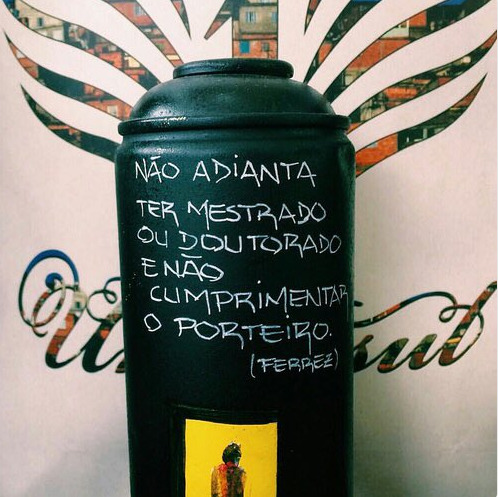 NÃO ADIANTA
TER MESTRADO
OU DOUTORADO
E NÃO
CUMPRIMENTAR
O PORTEIRO.
(FERREZ)